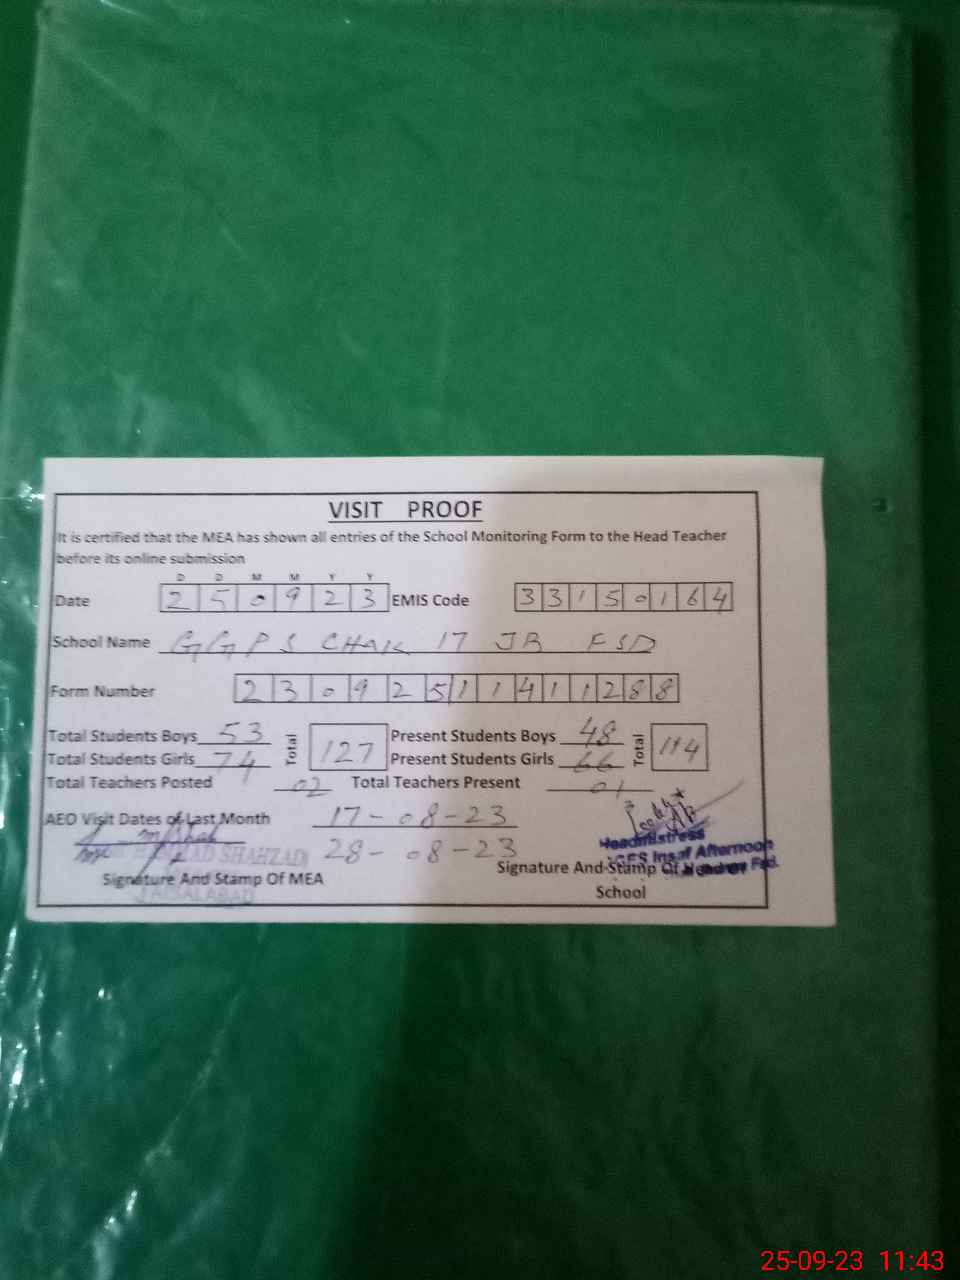 VISIT PROOF
It is certified that the MEA has shown all entries of the School Monitoring Form to the Head Teacher
before its online submission
D D M M Y Y
Date 2 5 0 9 2 3 EMIS Code 3 3 1 5 0 1 6 4
School Name GGPS CHAK 17 JB FSD
Form Number 2 3 0 9 2 5 1 1 4 1 1 2 8 8
Total Students Boys 53 Total 127 Present Students Boys 48 Total 114
Total Students Girls 74 Present Students Girls 66
Total Teachers Posted 02 Total Teachers Present 01
AEO Visit Dates of Last Month 17-08-23
28-08-23
SHAHZAD
Headmistress
Insaf Afternoon
Signature And Stamp Of MEA Signature And Stamp Of
FAISALABAD School
25-09-23 11:43